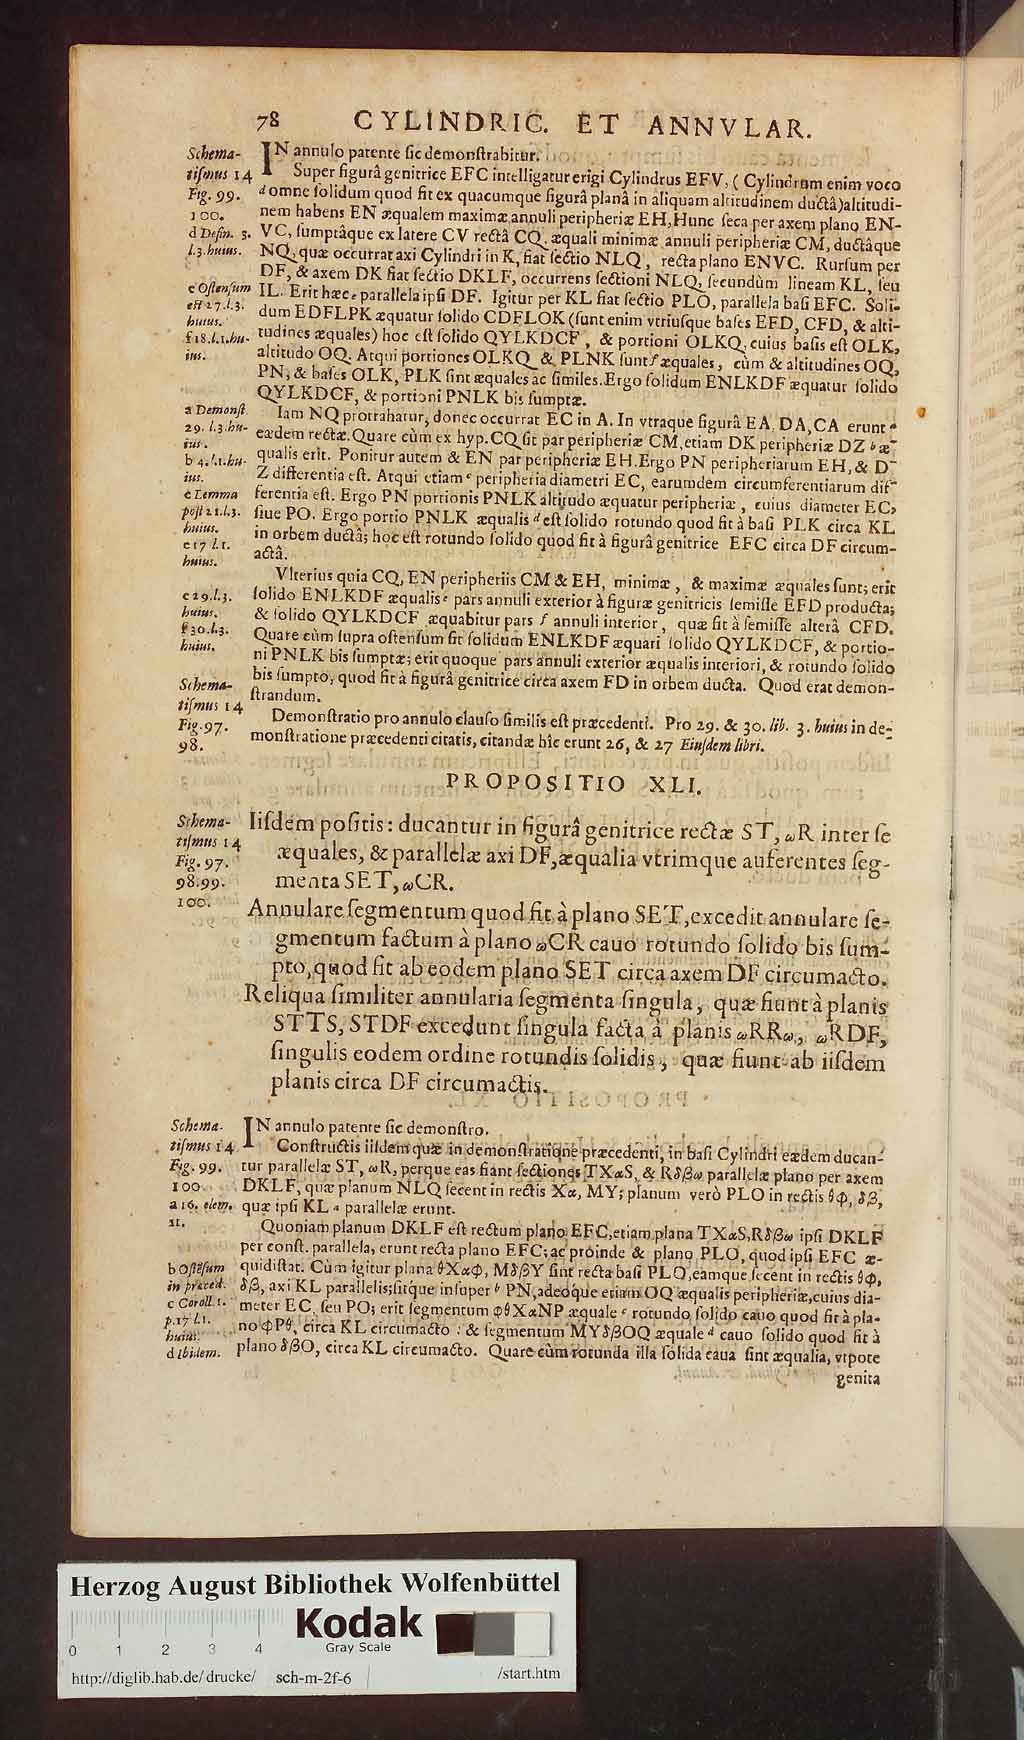 78 CYLINDRIC. ET ANNVLAR.
Schema-
tiſmus 14
Fig. 99.
100.
d Defin. 3.
l.3.huius.
e Oſtenſum
eſt 27.l.3.
huius.
f 18.l.1.hu-
ius.
a Demonſt.
29. l.3.hu-
ius.
b 4.l.1.hu-
ius.
c Lemma
poſt 21.l.3.
huius.
c 17 l.1.
huius.
e 29.l.3.
huius.
f 30.l.3.
huius.
Schema-
tiſmus 14
Fig. 97.
98.
IN annulo patente ſic demonſtrabitur.
Super figurâ genitrice EFC intelligatur erigi Cylindrus EFV, (Cylindrum enim voco
d omne ſolidum quod fit ex quacumque figurâ planâ in aliquam altitudinem ductâ) altitudi-
nem habens EN æqualem maximæ annuli peripheriæ EH, Hunc ſeca per axem plano EN-
VC, ſumptâque ex latere CV rectâ CQ, æquali minimæ annuli peripheriæ CM, ductâque
NQ, quæ occurrat axi Cylindri in K, fiat ſectio NLQ, recta plano ENVC. Rurſum per
DF, & axem DK fiat ſectio DKLF, occurrens ſectioni NLQ, ſecundùm lineam KL, ſeu
IL. Erit hæc e parallela ipſi DF. Igitur per KL fiat ſectio PLO, parallela baſi EFC. Soli-
dum EDFLPK æquatur ſolido CDFLOK (ſunt enim vtriuſque baſes EFD, CFD, & alti-
tudines æquales) hoc eſt ſolido QYLKDCF, & portioni OLKQ, cuius baſis eſt OLK,
altitudo OQ. Atqui portiones OLKQ & PLNK ſunt f æquales, cùm & altitudines OQ,
PN, & baſes OLK, PLK ſint æquales ac ſimiles. Ergo ſolidum ENLKDF æquatur ſolido
QYLKDCF, & portioni PNLK bis ſumptæ.
Iam NQ protrahatur, donec occurrat EC in A. In vtraque figurâ EA, DA, CA erunt a
eædem rectæ. Quare cùm ex hyp. CQ ſit par peripheriæ CM, etiam DK peripheriæ DZ b æ-
qualis erit. Ponitur autem & EN par peripheriæ EH. Ergo PN peripheriarum EH, & D-
Z differentia eſt. Atqui etiam c peripheria diametri EC, earumdem circumferentiarum dif-
ferentia eſt. Ergo PN portionis PNLK altitudo æquatur peripheriæ, cuius diameter EC,
ſiue PO. Ergo portio PNLK æqualis d eſt ſolido rotundo quod fit à baſi PLK circa KL
in orbem ductâ; hoc eſt rotundo ſolido quod fit à figurâ genitrice EFC circa DF circum-
actâ.
Vlterius quia CQ, EN peripheriis CM & EH, minimæ, & maximæ æquales ſunt; erit
ſolido ENLKDF æqualis e pars annuli exterior à figuræ genitricis ſemiſſe EFD producta;
& ſolido QYLKDCF æquabitur pars f annuli interior, quæ fit à ſemiſſe alterâ CFD.
Quare cùm ſupra oſtenſum ſit ſolidum ENLKDF æquari ſolido QYLKDCF, & portio-
ni PNLK bis ſumptæ; erit quoque pars annuli exterior æqualis interiori, & rotundo ſolido
bis ſumpto, quod fit à figurâ genitrice circa axem FD in orbem ducta. Quod erat demon-
ſtrandum.
Demonſtratio pro annulo clauſo ſimilis eſt præcedenti. Pro 29. & 30. lib. 3. huius in de-
monſtratione præcedenti citatis, citandæ hîc erunt 26, & 27 Eiuſdem libri.
PROPOSITIO XLI.
Schema-
tiſmus 14
Fig. 97.
98.99.
100.
Iiſdem poſitis: ducantur in figurâ genitrice rectæ ST, ωR inter ſe
æquales, & parallelæ axi DF, æqualia vtrimque auferentes ſeg-
menta SET, ωCR.
Annulare ſegmentum quod fit à plano SET, excedit annulare ſe-
gmentum factum à plano ωCR cauo rotundo ſolido bis ſum-
pto, quod fit ab eodem plano SET circa axem DF circumacto.
Reliqua ſimiliter annularia ſegmenta ſingula, quæ fiunt à planis
STTS, STDF excedunt ſingula facta à planis ωRRω, ωRDF,
ſingulis eodem ordine rotundis ſolidis, quæ fiunt ab iiſdem
planis circa DF circumactis.
Schema-
tiſmus 14
Fig. 99.
100.
a 16. elem.
11.
b Oſtēſum
in præced.
c Coroll 1.
p.17 l.1.
huius.
d Ibidem.
IN annulo patente ſic demonſtro.
Conſtructis iiſdem quæ in demonſtratione præcedenti, in baſi Cylindri eædem ducan-
tur parallelæ ST, ωR, perque eas fiant ſectiones TXαS, & Rδβω parallelæ plano per axem
DKLF, quæ planum NLQ ſecent in rectis Xα, MY; planum verò PLO in rectis θφ, δβ,
quæ ipſi KL a parallelæ erunt.
Quoniam planum DKLF eſt rectum plano EFC, etiam plana TXαS, Rδβω ipſi DKLF
per conſt. parallela, erunt recta plano EFC; ac proinde & plano PLO, quod ipſi EFC æ-
quidiſtat. Cùm igitur plana θXαφ, MδβY ſint recta baſi PLO, eamque ſecent in rectis θφ,
δβ, axi KL parallelis; ſitque inſuper b PN, adeoque etiam OQ æqualis peripheriæ, cuius dia-
meter EC, ſeu PO; erit ſegmentum φθXαNP æquale c rotundo ſolido cauo quod fit à pla-
no φPθ, circa KL circumacto: & ſegmentum MYδβOQ æquale d cauo ſolido quod fit à
plano δβO, circa KL circumacto. Quare cùm rotunda illa ſolida caua ſint æqualia, vtpote
genita
Herzog August Bibliothek Wolfenbüttel
Kodak
Gray Scale
0 1 2 3 4
http://diglib.hab.de/drucke/ sch-m-2f-6 /start.htm